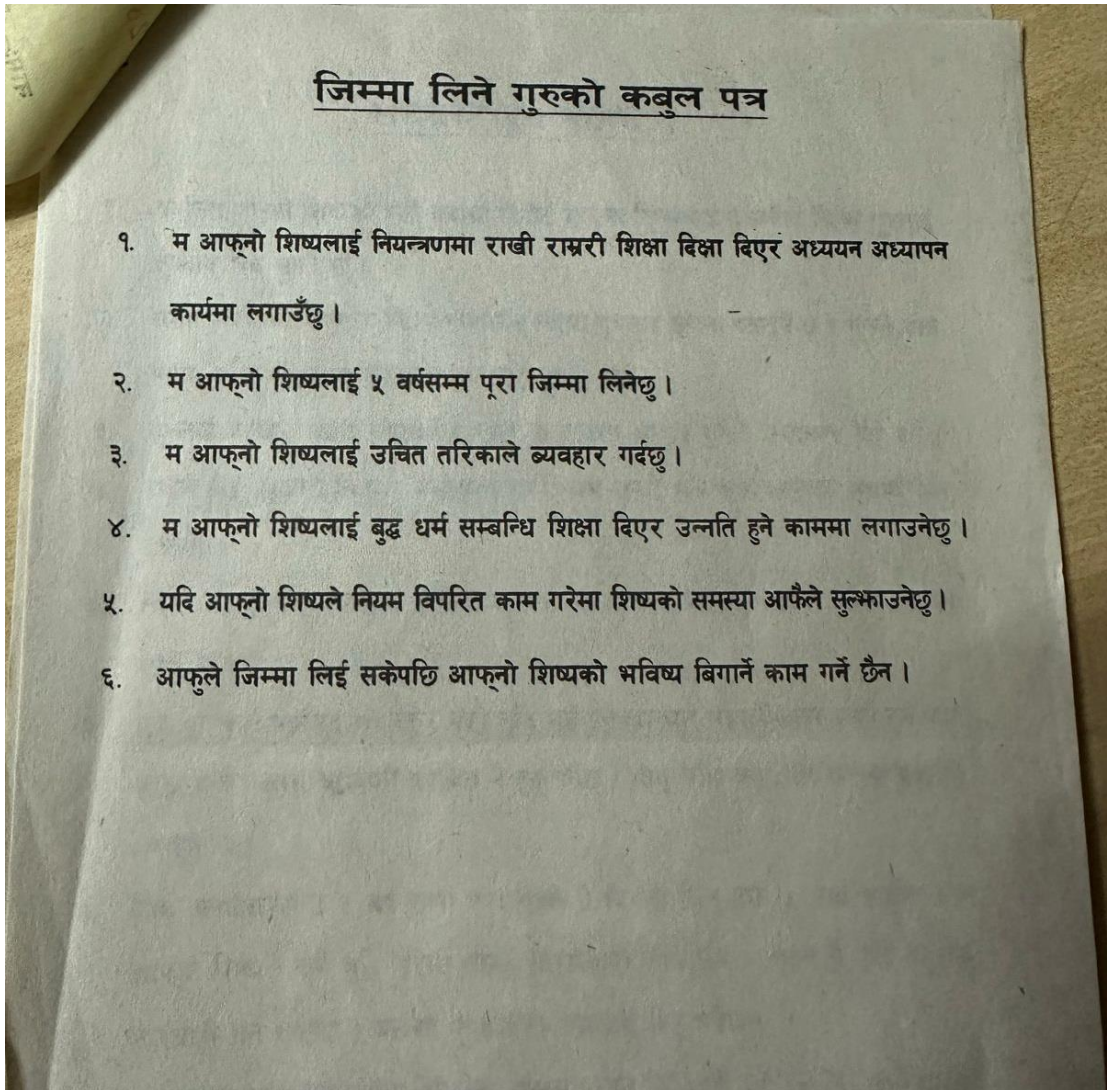 जिम्मा लिने गुरुको कबुल पत्र
१. म आफ्‌नो शिष्यलाई नियन्त्रणमा राखी राम्ररी शिक्षा दिक्षा दिएर अध्ययन अध्यापन
कार्यमा लगाउँछु ।
२. म आफ्‌नो शिष्यलाई ५ वर्षसम्म पूरा जिम्मा लिनेछु ।
३. म आफ्‌नो शिष्यलाई उचित तरिकाले ब्यवहार गर्दछु ।
४. म आफ्‌नो शिष्यलाई बुद्ध धर्म सम्बन्धि शिक्षा दिएर उन्नति हुने काममा लगाउनेछु ।
५. यदि आफ्‌नो शिष्यले नियम विपरित काम गरेमा शिष्यको समस्या आफैले सुल्झाउनेछु ।
६. आफुले जिम्मा लिई सकेपछि आफ्‌नो शिष्यको भविष्य बिगार्ने काम गर्ने छैन ।